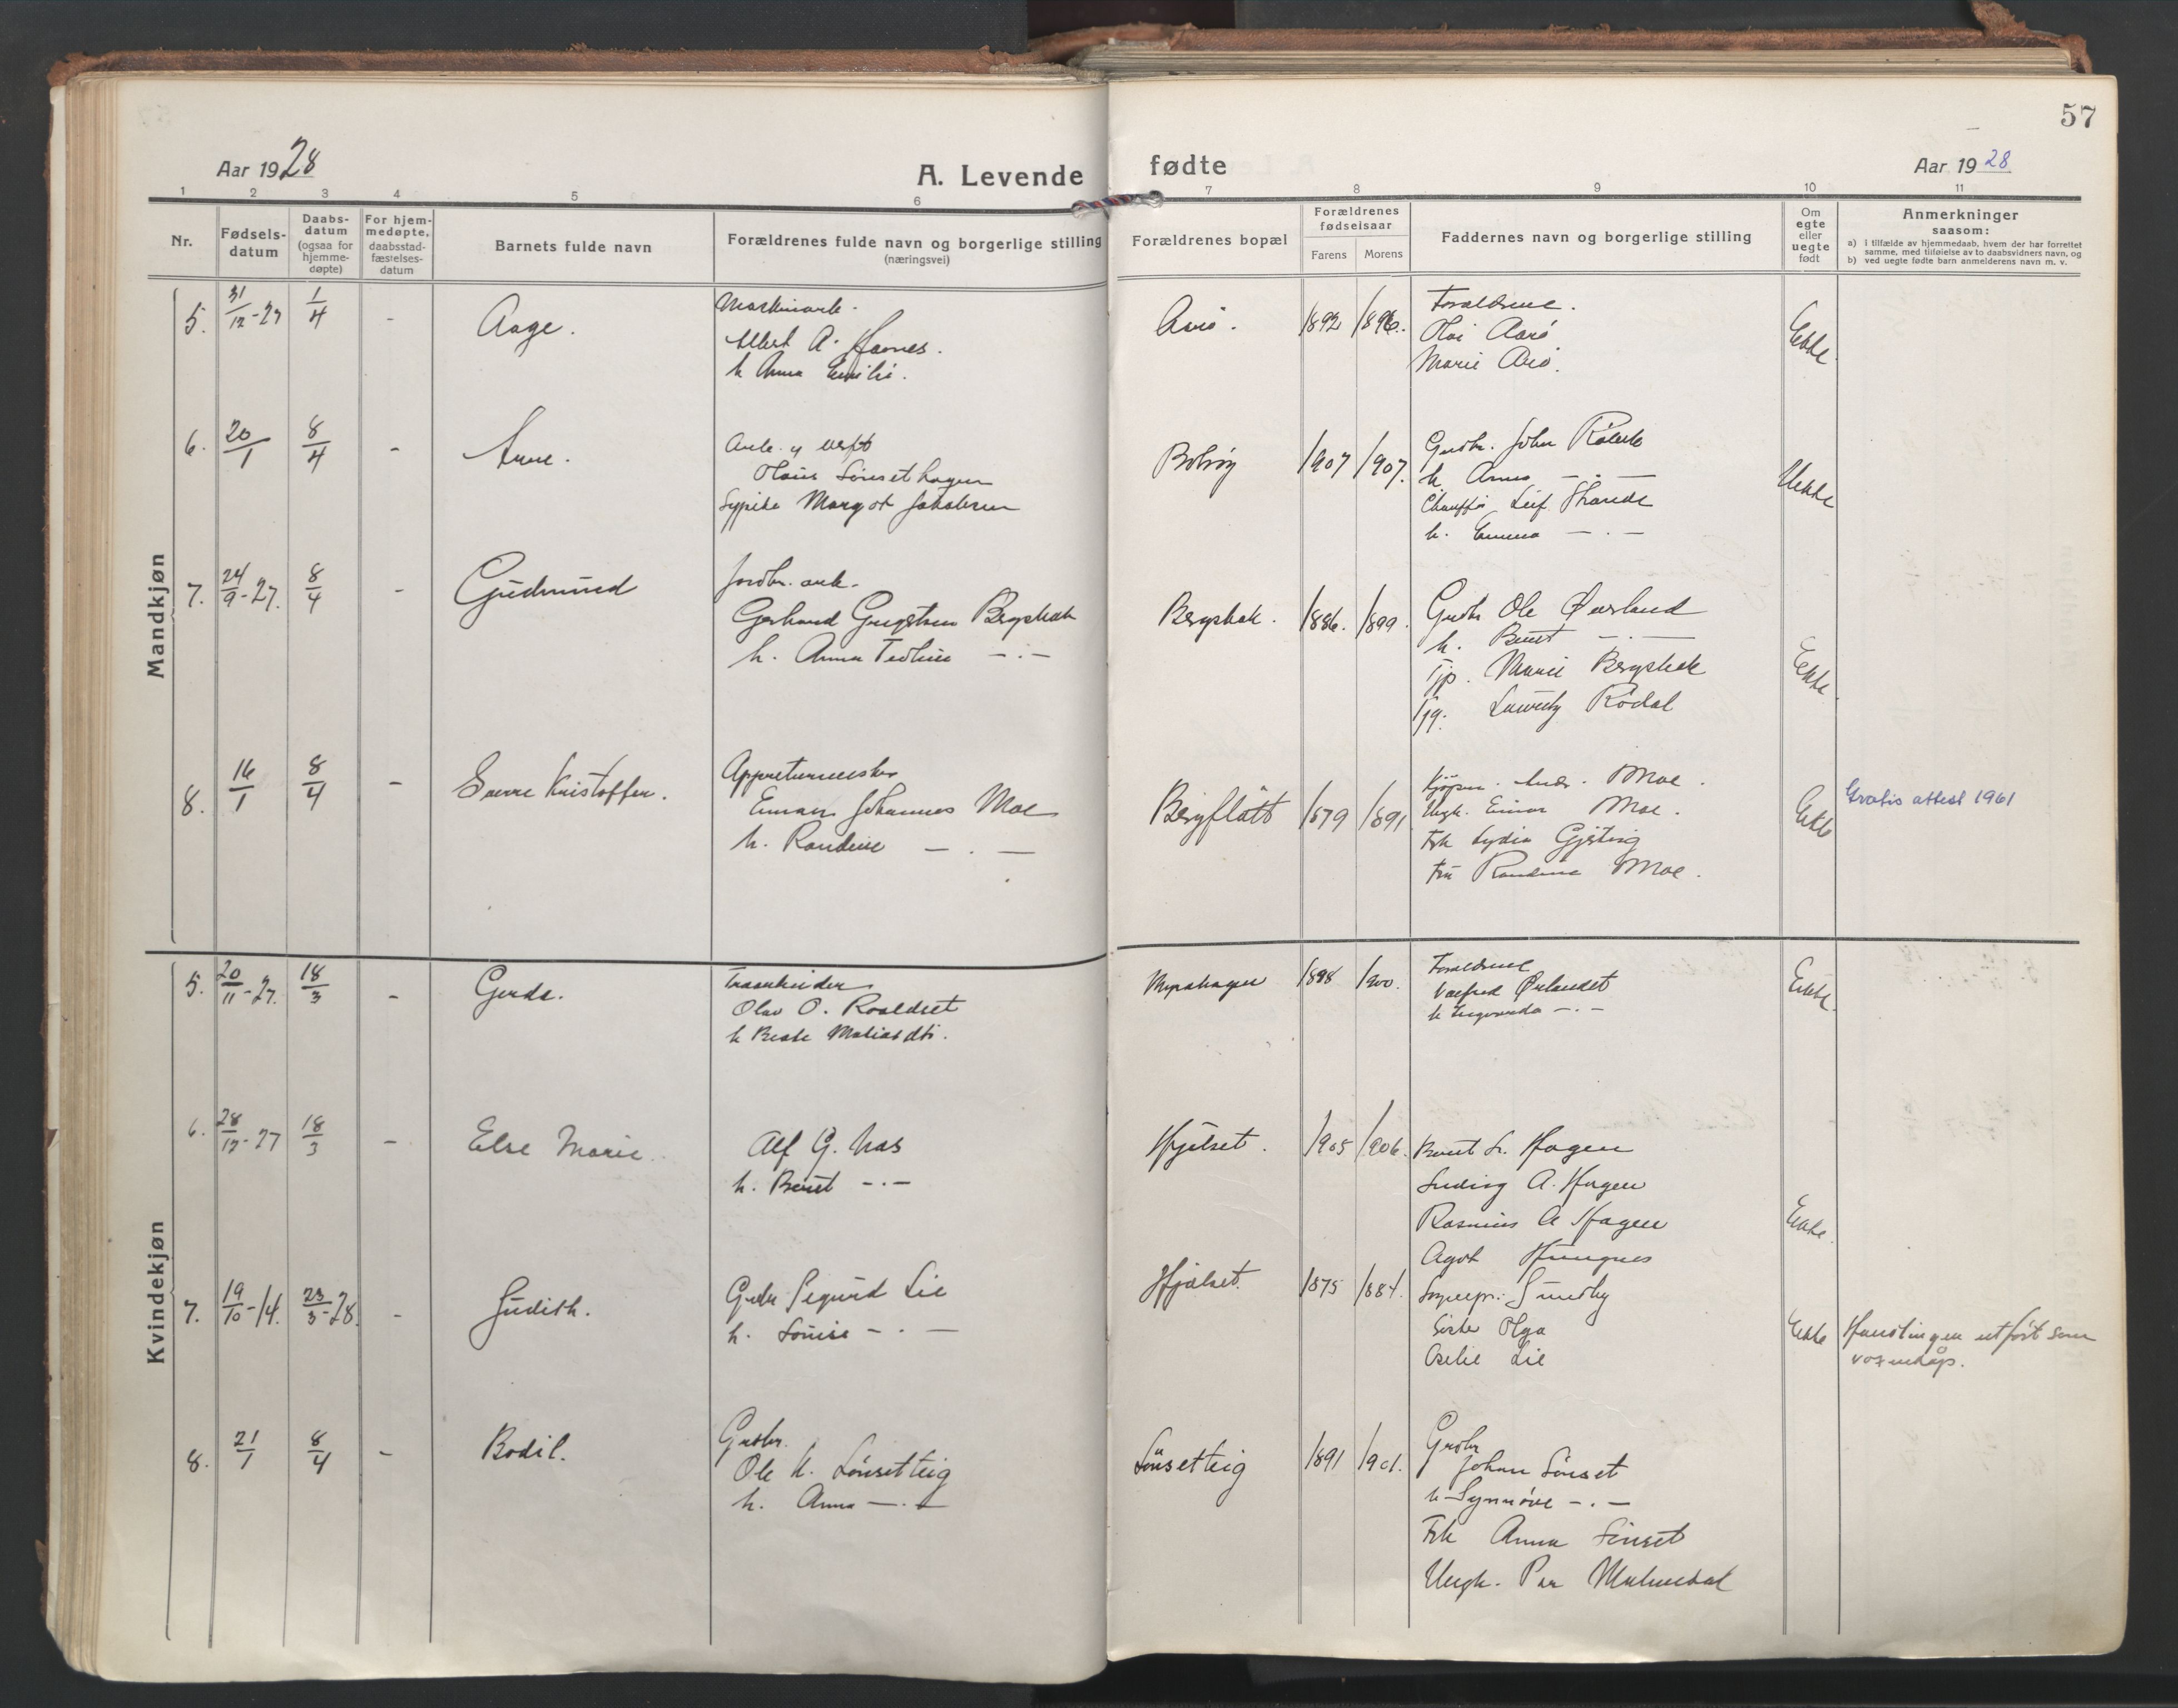 57
Aar 1928
A. Levende
fødte
Aar 1928
1 2 3 4 5 6 7 8 9 10 11
Nr.
Fødsels-
datum
Daabs-
datum
(ogsaa for
hjemme-
døpte)
For hjem-
medøpte,
daabsstad-
fæstelses-
datum
Barnets fulde navn
Forældrenes fulde navn og borgerlige stilling
(næringsvei)
Forældrenes bopæl
Forældrenes
fødselsaar
Farens Morens
Faddernes navn og borgerlige stilling
Om
egte
eller
uegte
født
Anmerkninger
saasom:
a) i tilfælde av hjemmedaab, hvem der har forrettet
samme, med tilføielse av to daabsvidners navn, og
b) ved uegte fødte barn anmelderens navn m. v.
Mandkjøn
5. 31/12-27 1/4 - Aage.
Maskinarb.
Albert A. Hanes.
h Anna Emilie.
Arø. 1892 1896.
Forældrene.
Olai Aarø
Marie Arø.
Ekte.
6. 20/1 8/4 - Arne.
Arb.
Olaus Lønsethagen
Sypike Margot Jakobsen
Bolsøy 1907 1907.
Gmbr. John
h. Anna -.-
Chauffør Leif Strande
h. Emma -.-
Uekte
7. 24/9-27. 8/4 - Gudmund
Jordbr. arb.
Gerhard Bergsbak
h. Anna -.-
Bergsbak. 1886. 1899.
Gmbr Ole Øverland
h. Berit -.-
Tjp. Marie Bergsbak
Tjg. Rødal
Ekte.
8. 16/1 8/4 - Sverre Kristoffer.
Appreturmester
Einar Johannes Moe
h. Randine -.-
Bergflått 1879 1891
Moe.
Ungk. Einar Moe.
Frk Lydia
Fru Randine Moe.
Ekte
Gratis attest 1961
Kvindekjøn
5. 20/11-27. 18/3 - Gerda.
Traanbrænder
Olav O. Roaldset
h Beate
Myrahagen 1898 1900.
Forældrene
Valfred Ørlandet
h -.-
Ekte.
6. 28/12-27 18/3 - Else Marie.
Alf G. Nas
h. Berit -.-
Hjelset. 1905 1906.
Berit L. Hagen
Ludvig A. Hagen
Rasmus A Hagen
Agot
Ekte.
7. 19/10-14. 23/3-28. - Judith.
Gmbr Sigurd Lie
h. Louise -.-
Hjelset. 1875 1884.
Sogнepr. Sundby
Søster Olga
Lie
Ekte
Handlingen utført som
voxendåp.
8. 21/1 8/4 - Bodil.
Gmbr.
Ole K. Lønsetteig
h. Anna -.-
Lønsetteig 1891 1901.
Gmbr
Johan Lønset
h Synnøve -.-
Frk Anna Lønset
Ungk. Per Malmedal